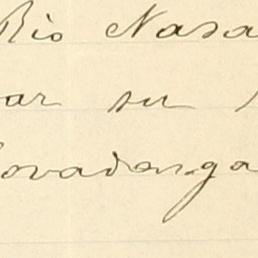 Rio Nasa
ar su
ovadonga